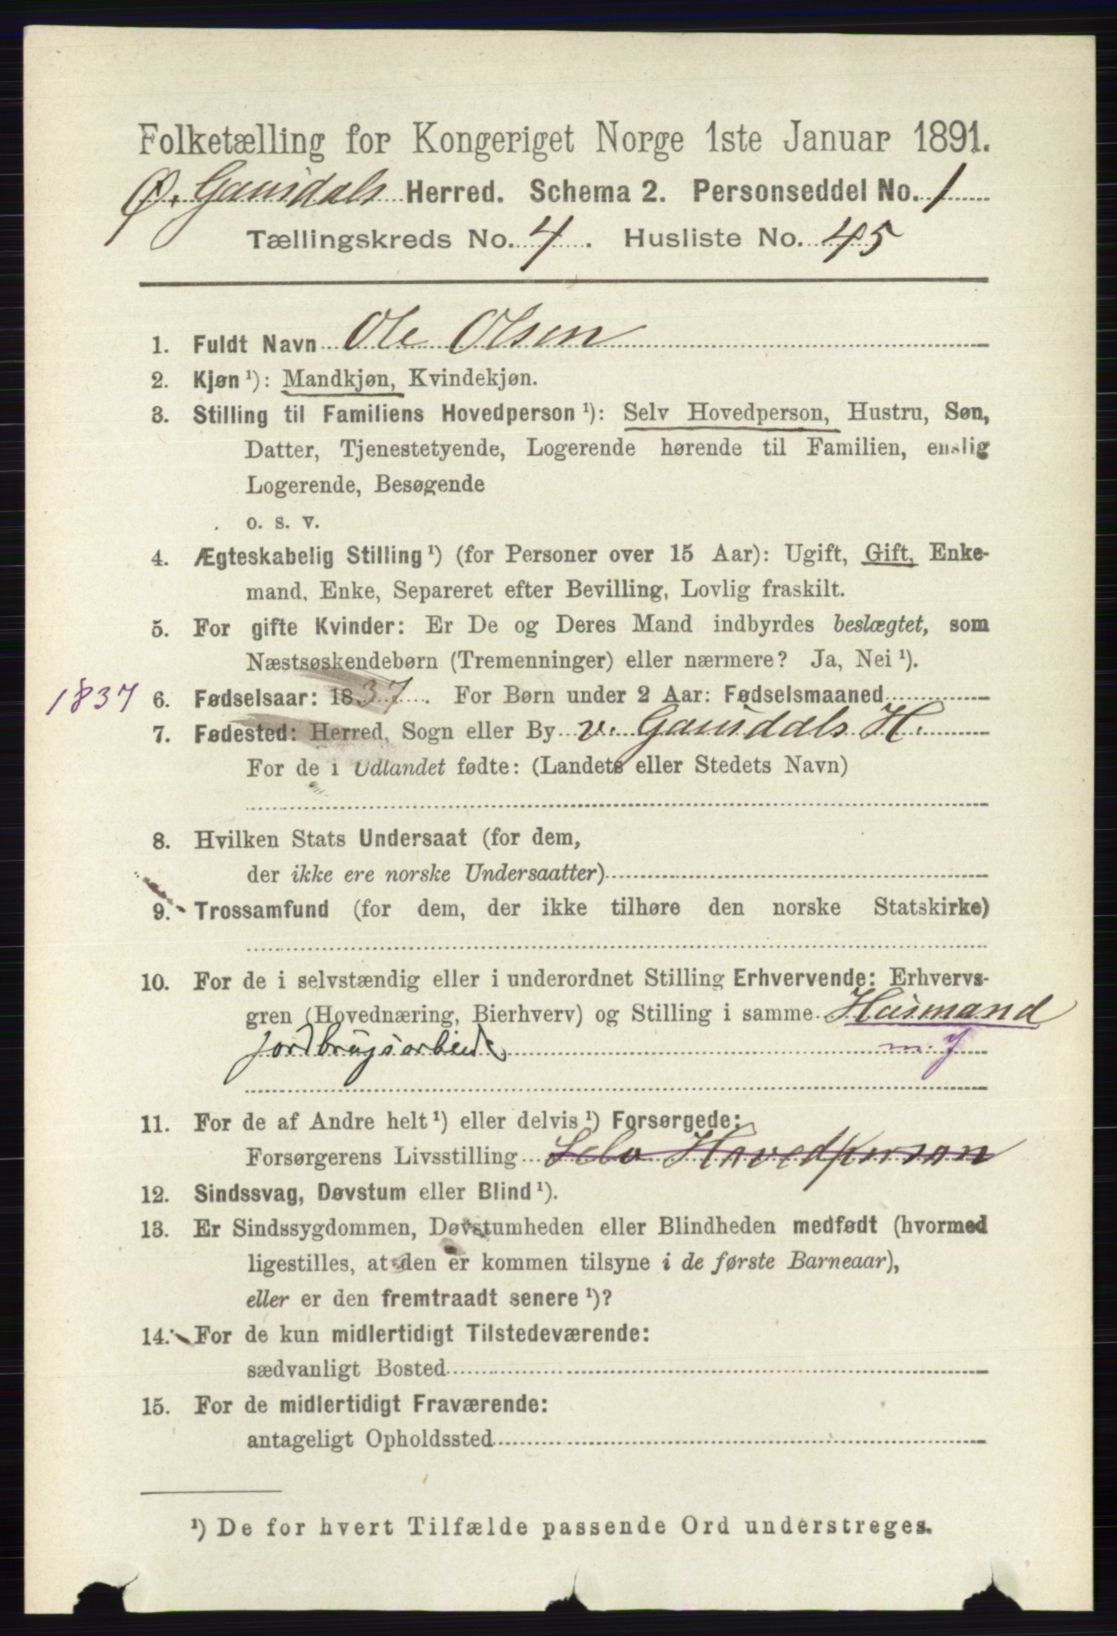 Folketælling for Kongeriget Norge 1ste Januar 1891.
Ø. Gausdals Herred. Schema 2. Personseddel No. 1
Tællingskreds No. 4. Husliste No. 45
1. Fuldt Navn Ole Olsen
2. Kjøn ¹): Mandkjøn, Kvindekjøn.
3. Stilling til Familiens Hovedperson ¹): Selv Hovedperson, Hustru, Søn,
Datter, Tjenestetyende, Logerende hørende til Familien, enslig
Logerende, Besøgende
o. s. v.
4. Ægteskabelig Stilling ¹) (for Personer over 15 Aar): Ugift, Gift, Enke-
mand, Enke, Separeret efter Bevilling, Lovlig fraskilt.
5. For gifte Kvinder: Er De og Deres Mand indbyrdes beslægtet, som
Næstsøskendebørn (Tremenninger) eller nærmere? Ja, Nei ¹).
1837 6. Fødselsaar: 1837. For Børn under 2 Aar: Fødselsmaaned
7. Fødested: Herred, Sogn eller By v. Gausdals H.
For de i Udlandet fødte: (Landets eller Stedets Navn)
8. Hvilken Stats Undersaat (for dem,
der ikke ere norske Undersaatter)
9. Trossamfund (for dem, der ikke tilhøre den norske Statskirke)
10. For de i selvstændig eller i underordnet Stilling Erhvervende: Erhvervs-
gren (Hovednæring, Bierhverv) og Stilling i samme Husmand
jordbrugsarbeide m. j
11. For de af Andre helt ¹) eller delvis ¹) Forsørgede:
Forsørgerens Livsstilling Selv Hovedperson
12. Sindssvag, Døvstum eller Blind ¹).
13. Er Sindssygdommen, Døvstumheden eller Blindheden medfødt (hvormed
ligestilles, at den er kommen tilsyne i de første Barneaar),
eller er den fremtraadt senere ¹)?
14. For de kun midlertidigt Tilstedeværende:
sædvanligt Bosted
15. For de midlertidigt Fraværende:
antageligt Opholdssted
¹) De for hvert Tilfælde passende Ord understreges.